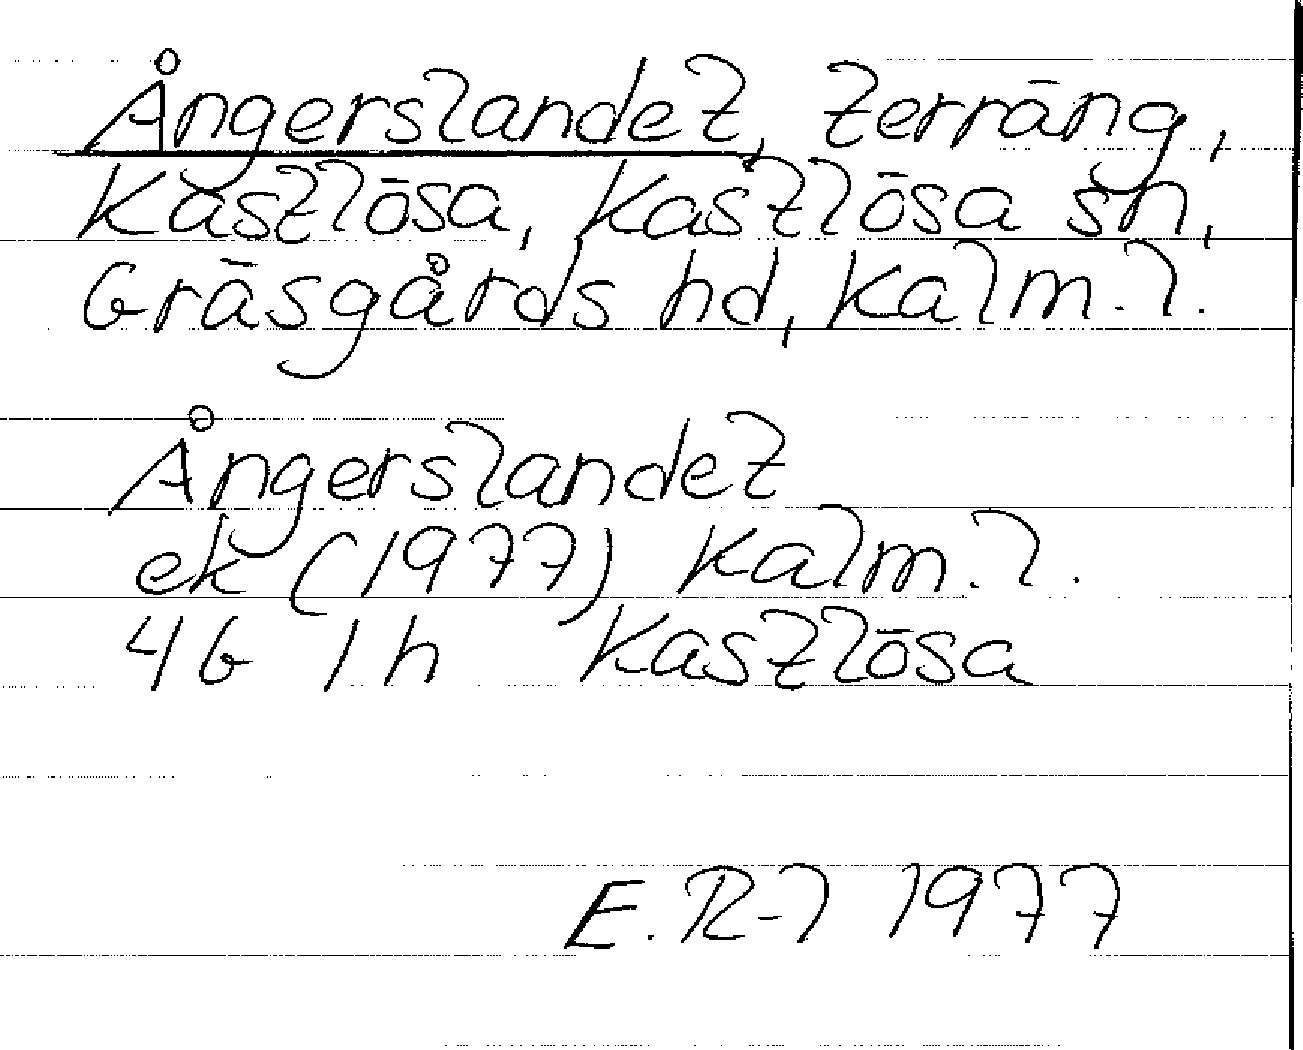 Ångerslandet, terräng,
Kastlösa, Kastlösa sn,
Gräsgårds hd, Kalm. l.
Ångerslandet
ek (1977) Kalm. l.
4G 1h Kastlösa
E. R-l 1977